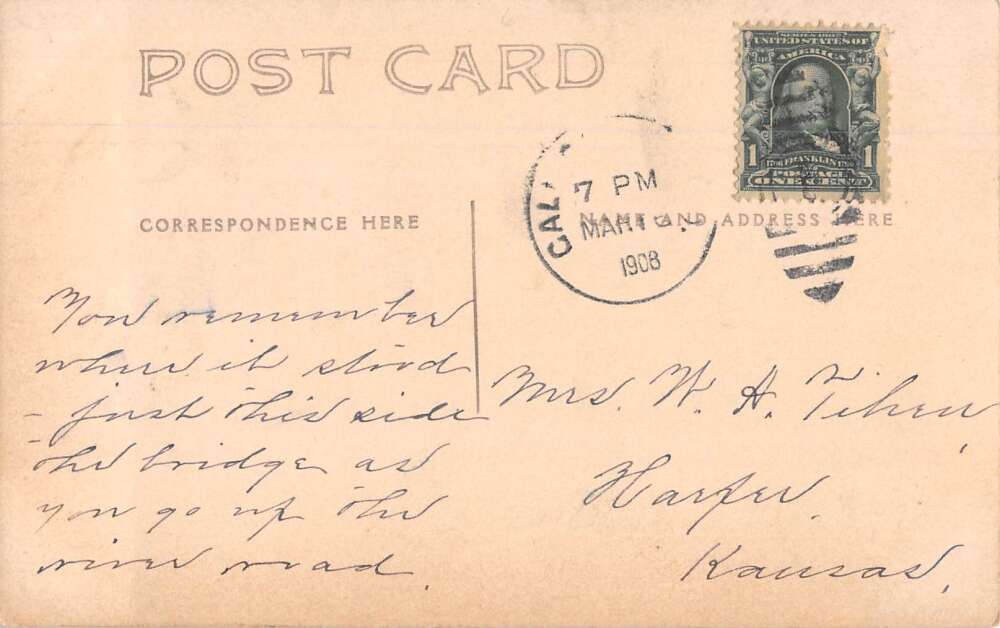 POST CARD
SERIES 1902
UNITED STATES OF
AMERICA
1 FRANKLIN 1
POSTAGE
ONE CENT
CAL
7 PM
MAR
1908
CORRESPONDENCE HERE
NAME AND ADDRESS HERE
You remember
where it stood
- just this side
the bridge as
you go up the
river road.
Mrs. W. H. Tihen,
Harper,
Kansas.